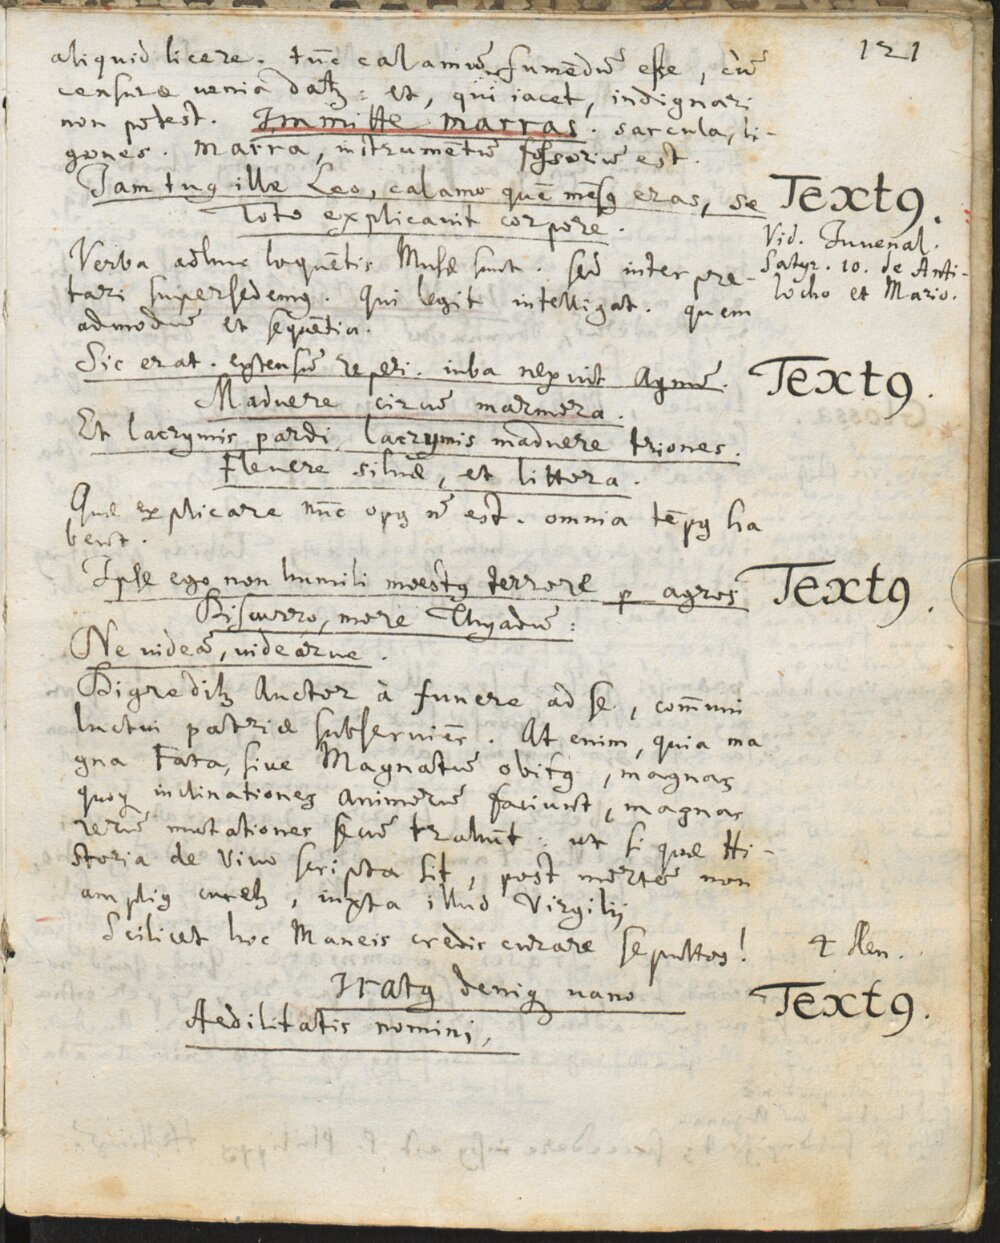 121
aliquid licere. tūc calamū sumēdū esse, cū
censuræ venia datꝫ: et, qui iacet, indignari
non potest. Immitte marras. sarcula, li-
gones. Marra, instrumētū fossoriū est.
Iam tuꝯ ille Leo, calamo quē mēsꝯ eras, se
Toto explicavit corpore.
Textꝯ.
Vid. Iuvenal.
Satyr. 10. de Anti-
locho et Mario.
Verba adhuc loquētis Musæ sunt. sed interpre-
tari supersedemꝯ. Qui legit intelligat. quem
admodū et seqūetia.
Sic erat. extensū reperi. iuba nexuit Agmē.
Textꝯ.
Maduere circū marmora.
Et lacrymis pardi, lacrymis maduere triones.
Flevere silvæ, et littora.
Quæ explicare nūc opꝯ nō est. omnia tēpꝯ ha
bent.
Ipse ego non humili moestꝯ terrore p agros
Textꝯ.
Discurro, more Thyadū:
Ne videā, videarve.
Digreditꝫ Auctor à funere ad se, com̄uni
luctui patriæ subserviēs. At enim, quia ma
gna Fata, sive Magnatū obitꝯ, magnas
quoqꝫ inclinationes animorū faciunt, magnas
rerū mutationes secū trahūt: ut si quæ Hi-
storia de vivo scripta sit, post mortē non
ampliꝯ curetꝫ, iuxta illud Virgilij
Scilicet hoc Maneis credis curare sepultos!
4 Æen.
Iratꝯ deniqꝫ vano
Textꝯ.
Aedilitatis nomini,